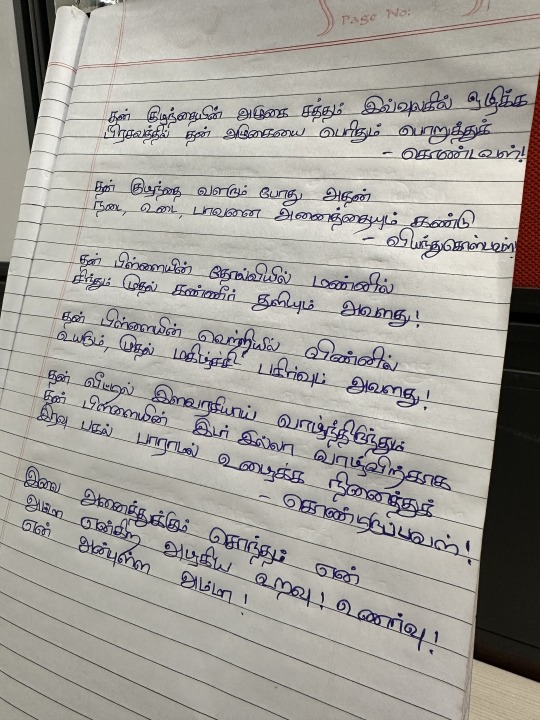 Page No:
தன் குழந்தையின் அழுகை சத்தம் இவ்வுலகில் ஒழிக்க
பிரசவத்தில் தன் அழுகையை பெரிதும் பொறுத்துக்
- கொண்டவள்!
தன் குழந்தை வளரும் போது அதன்
நடை, உடை, பாவனை அனைத்தையும் கண்டு
- வியந்துகொள்பவள்!
தன் பிள்ளையின் தோல்வியில் மண்ணில்
சிந்தும் முதல் கண்ணீர் துளியும் அவளது!
தன் பிள்ளையின் வெற்றியில் விண்ணில்
உயரும், முதல் மகிழ்ச்சி பகிர்வும் அவளது!
தன் வீட்டில் இளவரசியாய் வாழ்ந்திருந்தும்
தன் பிள்ளையின் இடர் இல்லா வாழ்விற்காக
இரவு பகல் பாராமல் உழைக்க நினைத்துக்
- கொண்டிருப்பவள்!
இவை அனைத்துக்கும் சொந்தம் என்
அம்மா என்கிற அழகிய உறவு! உணர்வு!
என் அன்புள்ள அம்மா!